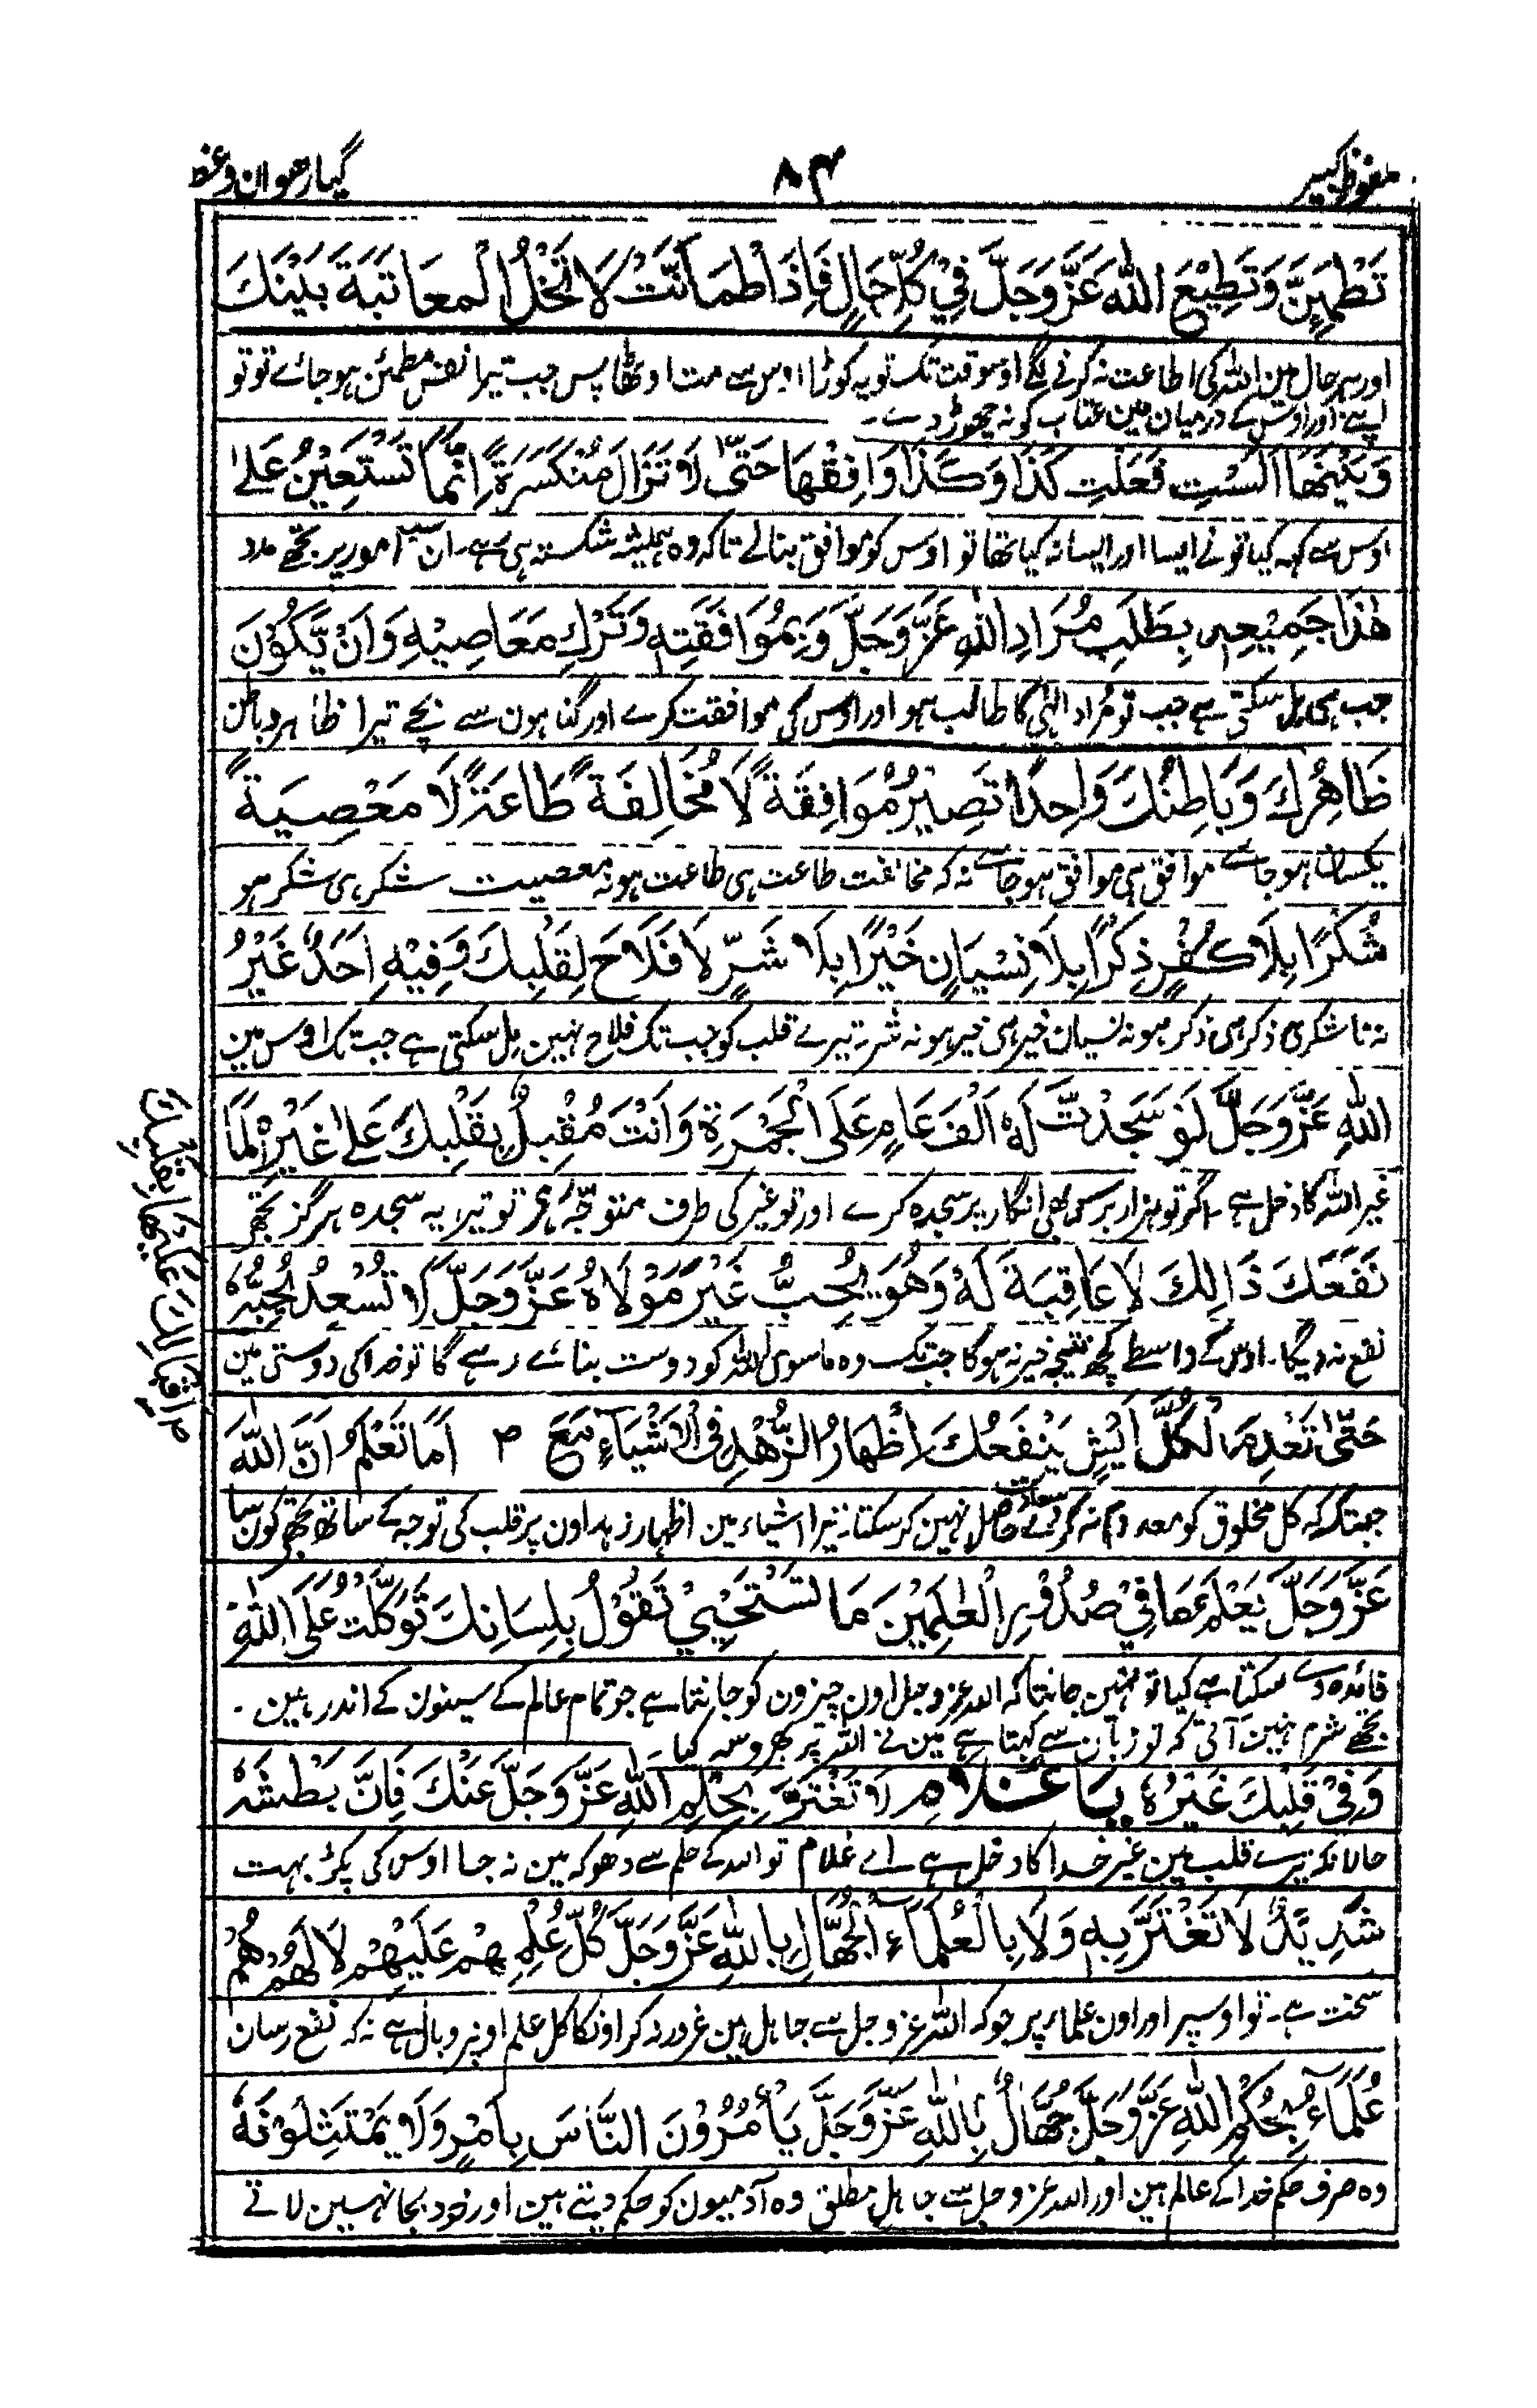 ملفوظ کبیر
۸۴
گیارھوان وعظ
تَطْمَئِنَّ وَتَطِيْعَ اللّٰهَ عَزَّوَجَلَّ فِيْ كُلِّ حَالٍ فَاِذَا طْمَأَنَّتْ لَا تَخْلُ الْمعَاتَبَةَ بَيْنَكَ
اور ہر حال مین اللہ کی اطاعت نہ کرنے لگے اوسوقت تک تو یہ کوڑا اوس سے مت اوٹھا پس جب تیرا نفس مطمئن ہو جائے تو تو
اپنے اور اوس کے درمیان مین عتاب کو نہ چھوڑ دے۔
وَبَيْنَهَا اَلَسْتِ فَعَلْتِ كَذَا وَكَذَا وَافِقْهَا حَتّٰى لَا تَزَالَ مُنْكَسَرَةً اِنَّمَا تَسْتَعِيْنُ عَلٰى
اوس سے کہہ کیا تونے ایسا اور ایسا نہ کیا تھا تو اوس کو موافق بنالے تاکہ وہ ہمیشہ شکستہ ہی رہے۔ ان سب امور پر تجھے مدد
هٰذَا جَمِيْعِهٖ بِطَلَبِ مُرَادِ اللّٰهِ عَزَّوَجَلَّ وَبِمُوَافَقَتِهٖ وَتَرْكِ مَعَاصِيْهِ وَاَنْ يَّكُوْنَ
جب ہی مل سکتی ہے جب تو مُراد الٰہی کا طالب ہو اور اوس کی موافقت کرے اور گناہون سے بچے تیرا ظاہر و باطن
ظَاهِرُكَ وَبَاطِنُكَ وَاحِدًا تَصِيْرُ مُوَافِقَةً لَا مُخَالِفَةً طَاعَةً لَا مَعْصِيَةً
یکسان ہو جائے موافق ہی موافق ہو جائے نہ کہ مخالفت طاعت ہی طاعت ہو نہ معصیت شکر ہی شکر ہو
شُكْرًا بِلَا كُفْرٍ ذِكْرًا بِلَا نِسْيَانٍ خَيْرًا بِلَا شَرٍّ لَا فَلَاحَ لِقَلْبِكَ وَفِيْهِ اَحَدٌ غَيْرُ
نہ ناشکری ذکر ہی ذکر ہو نہ نسیان خیر ہی خیر ہو نہ شر تیرے قلب کو جب تک فلاح نہین مل سکتی ہے جب تک اوس مین
اللّٰهِ عَزَّوَجَلَّ لَوْ سَجَدْتَّ لَهٗ اَلْفَ عَامٍ عَلَى الْجَمْرَةِ وَاَنْتَ مُقْبِلٌ بِقَلْبِكَ عَلٰى غَيْرِهٖ لَمَا
غیر اللہ کا دخل ہے۔ اگر تو ہزار برس بھی انگار پر سجدہ کرے اور تو غیر کی طرف متوجّہ ہو تو تیرا یہ سجدہ ہرگز تجھے
نَفَعَكَ ذَالِكَ لَا عَاقِبَةَ لَهٗ وَهُوَ يُحِبُّ غَيْرَ مَوْلَاهُ عَزَّوَجَلَّ لَا تُسْعِدُ بِحُبِّهٖ
نفع نہ دیگا۔ اوس کے واسطے کچھ نتیجہ خیر نہ ہوگا جب تک وہ ماسوی اللہ کو دوست بنائے رہے گا تو خدا کی دوستی مین
حَتّٰى تَعْدِمَ الْكُلَّ اَيْشٍ يَنْفَعُكَ اِظْهَارُ الزُّهْدِ فِى الْاَشْيَآءِ مَعَ ۲ اَمَا تَعْلَمُ اَنَّ اللّٰهَ
جبتک کہ کل مخلوق کو معدوم نہ کردے سعادت حاصل نہین کرسکتا۔ تیرا اشیاء مین اظہار زہد اون پر قلب کی توجہ کے ساتھ تجھکو کون سا
عَزَّوَجَلَّ يَعْلَمُ مَا فِيْ صُدُوْرِ الْعٰلَمِيْنَ مَا تَسْتَحْيِيْ تَقُوْلُ بِلِسَانِكَ تَوَكَّلْتُ عَلَى اللّٰهِ
فائدہ دے سکتا ہے کیا تو نہین جانتا کہ اللہ عزوجل اون چیزون کو جانتا ہے جو تمام عالم کے سینون کے اندر ہین۔
تجھے شرم نہین آتی کہ تو زبان سے کہتا ہے مین نے اللہ پر بھروسہ کیا
وَفِيْ قَلْبِكَ غَيْرُهٗ يَا غُلَامُ لَا تَغْتَرَّ بِحِلْمِ اللّٰهِ عَزَّوَجَلَّ عَنْكَ فَاِنَّ بَطْشَهٗ
حالانکہ تیرے قلب مین غیر خدا کا دخل ہے اے غلام تو اللہ کے حلم سے دھوکہ مین نہ جا اوس کی پکڑ بہت
شَدِيْدٌ لَا تَغْتَرَّ بِهٖ وَلَا بِالْعُلَمَآءِ الْجُهَّالِ بِاللّٰهِ عَزَّوَجَلَّ كُلُّ عِلْمِهِمْ عَلَيْهِمْ لَا لَهُمْ هُمْ
سخت ہے۔ تو اوسپر اور اون علماء پر جو کہ اللہ عزوجل سے جاہل ہین غرور نہ کر اونکا کل علم اونپر وبال ہے نہ کہ نفع رسان
عُلَمَآءُ بِحُكْمِ اللّٰهِ عَزَّوَجَلَّ جُهَّالٌ بِاللّٰهِ عَزَّوَجَلَّ يَأْمُرُوْنَ النَّاسَ بِاَمْرٍ وَلَا يَمْتَثِلُوْنَهٗ
وہ صرف حکم خدا کے عالم ہین اور اللہ عزوجل سے جاہل مطلق وہ آدمیون کو حکم دیتے ہین اور خود بجا نہین لاتے
۲ اِقْبَالِكَ عَلَيْهَا بِقَلْبِكَ